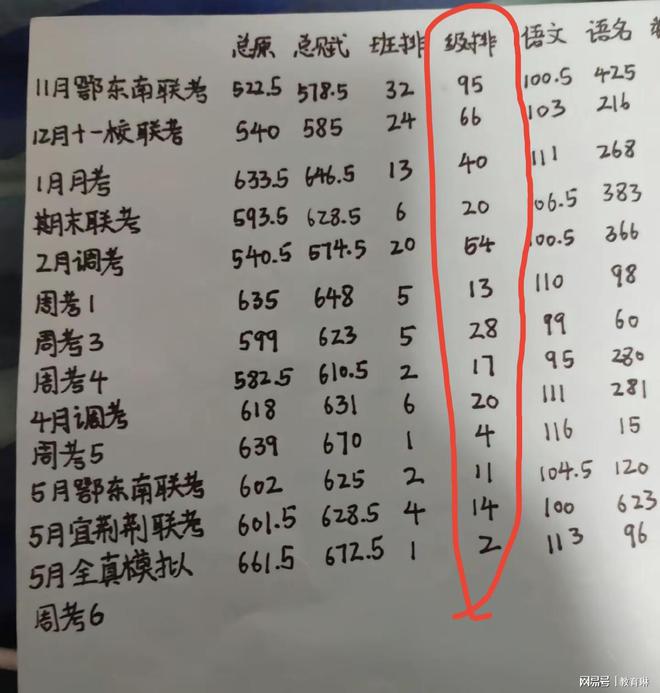 总原 总赋 班排 级排 语文 语名
11月鄂东南联考 522.5 578.5 32 95 100.5 425
12月十一校联考 540 585 24 66 103 216
1月月考 633.5 646.5 13 40 111 268
期末联考 593.5 628.5 6 20 06.5 383
2月调考 540.5 574.5 20 54 00.5 366
周考1 635 648 5 13 110 98
周考3 599 623 5 28 99 60
周考4 582.5 610.5 2 17 95 280
4月调考 618 631 6 20 111 281
周考5 639 670 1 4 116 15
5月鄂东南联考 602 625 2 11 104.5 120
5月宜荆荆联考 601.5 628.5 4 14 100 623
5月全真模拟 661.5 672.5 1 2 113 96
周考6
网易号 | 教育琳